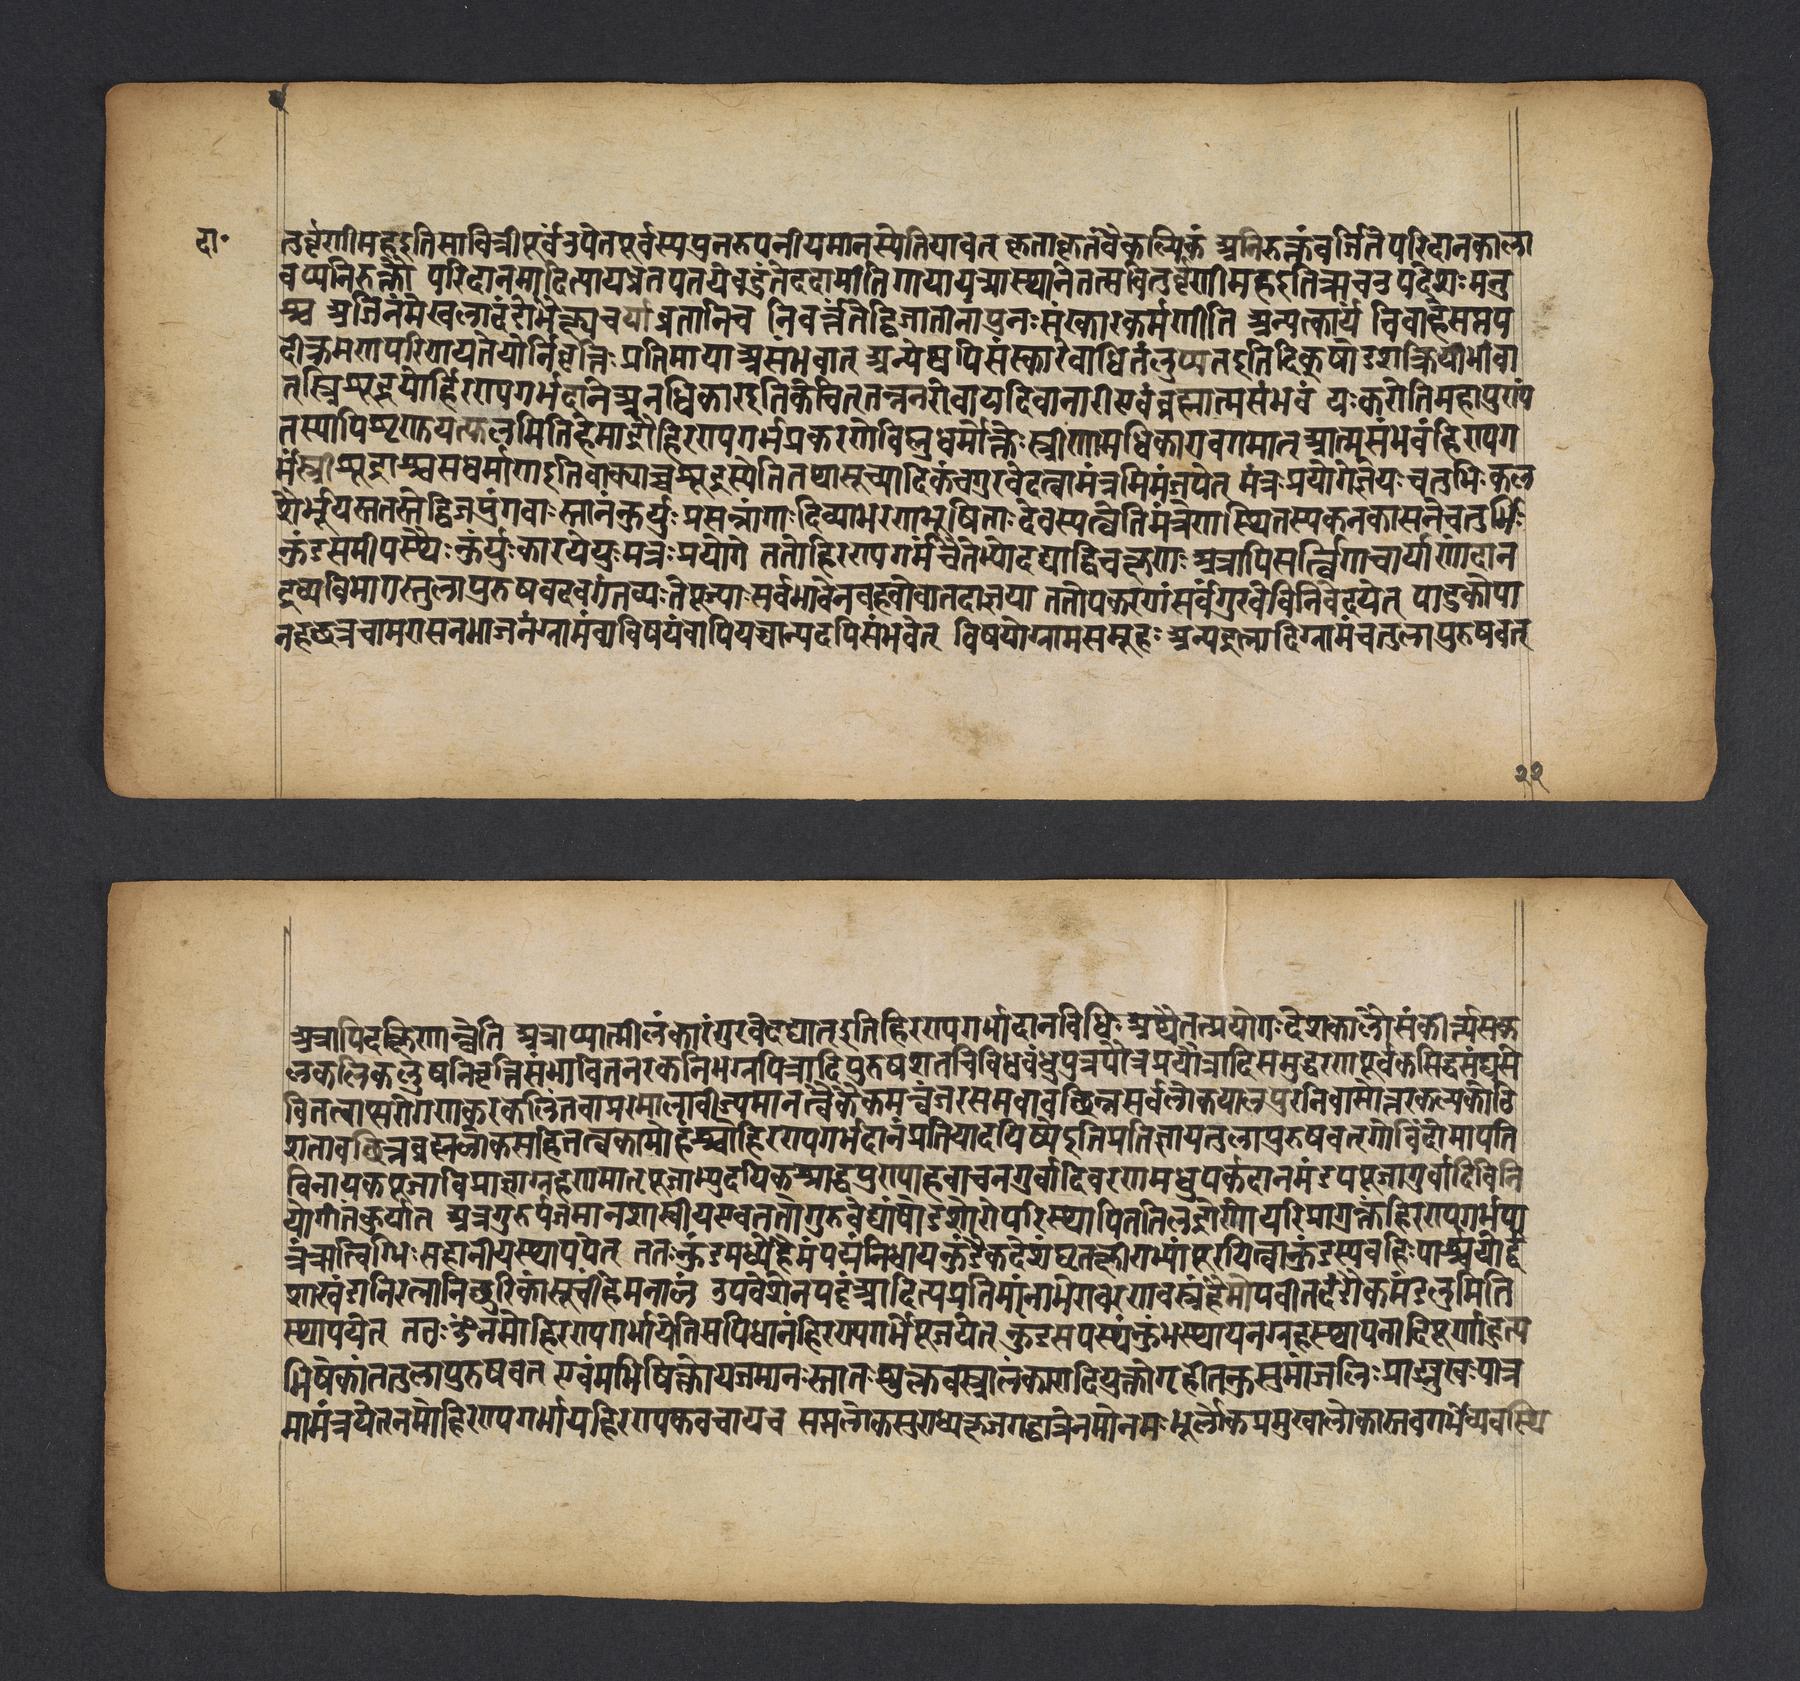 दा॰
तुर्वृणीमहइतिसावित्रीपूर्वउपेतपूर्वस्यपुनरुपनीयमानस्येतियावत् कृताकृतंवैकल्पिकं अनिरुक्तंवर्जितेपरिदानकाला
वप्यनिरुक्तौ परिदानमादित्यायत्रेतपतयेवदुंतेददामीति गायायत्र्यास्थानेतत्सवितुर्वृणीमहइतिऋचउपदेशः मनु
श्च अजिनंमेखलादंडोभैक्ष्यचर्याव्रतानिच निवर्त्तंतेद्विजातीनांपुनःसंस्कारकर्मणीति अन्यत्कार्यं विवाहेसप्तप
दीक्रमणपरिणायतयोर्निवृत्तिः प्रतिमायाअसंभवात् अन्येष्वपिसंस्कारेबाधितंलुप्यतइतिदिक्षुषोडशक्रियीभीवा
तस्त्रिशूद्रयोर्हिरण्यगर्भदानेअनधिकारइतिकेचित्तन्ननरोवायदिवानारीएवंब्रह्मात्मसंभवं यःकरोतिमहापुराणंप
तस्यापिशृणुयत्फलमितिहेमाद्रौहिरण्यगर्भप्रकरणेविष्णुधर्मोक्तेः स्त्रीणामधिकारावगमात् आत्मसंभवंहिरण्यग
र्भंस्त्रीशूद्राश्चसधर्माणाइतिवाक्याच्चशूद्रस्येतितथासूच्यादिकंचगुरवेदत्वामंत्रमिमंजपेत् मंत्रःप्रयोगेज्ञेयः चतुभिःकल
शैर्भूयस्ततस्तेद्विजपुंगवाः स्नानंकुर्युः प्रसन्नांगाः दिव्याभरणभूषिताः देवस्यत्वेतिमंत्रेणस्थितस्यकनकासनेचतुर्भिः
कुंडसमीपस्थैः कुर्युः कारयेयुः मंत्रः प्रयोगे ततोहिरण्यगर्भंचतेभ्योदद्याद्विचक्षणः अत्रापिसर्त्विगाचार्याणांदान
द्रव्यविभागस्तुलापुरुषवदवगंतव्यः तेपूज्याः सर्वभावेनबहवोवातदाज्ञया तत्तोपकरणंसर्वंगुरवेविनिवेदयेत् पादुकोपा
नहछत्रचामरासनभाजनंग्रामंवाविषयंवापियच्चान्यदपिसंभवेत् विषयोग्रामसमूहः अन्यद्गृहादिग्रामंचतुलापुरुषवत्
२२
अत्रापिदक्षिणान्वेति अत्राप्यात्मीलंकारंगुरवेदद्यात्इतिहिरण्यगर्भादानविधिः अथैतत्प्रयोगः देशकालौसंकीर्त्यसक
लकलिकलुषनिवृत्तिसंभावितनरकनिमग्नपित्रादिपुरुषशतत्रिविधबंधुपुत्रपौत्रप्रपौत्रादिसमुद्धरणपूर्वकसिद्धसंघसे
वितत्वाप्सरोगणकरकलितचामरमालावीज्यमानत्वैकैकमन्वंतरसमयावच्छिन्नसर्वलोकपालपुरनिवासोत्तरकल्पकोटि
शतावच्छिन्नब्रह्मलोकसहितत्वकामोहंश्वोहिरण्यगर्भदानंप्रतिपादयिष्येइतिप्रतिज्ञायतुलापुरुषवत् गोविंदोमापति
विनायकपूजाविप्राज्ञाग्रहणमातृपूजाभ्युदयिकश्राद्धपुण्याहवाचनगुर्वादिवरणमधुपर्कदानमंडपपूजागुर्वादिविनि
योगांतंकुर्यात् अत्रगुरुर्यजमानशास्त्रीयस्वततोगुरुवेद्यांषोडशारोपरिस्थापिततिलद्रोणोपरिप्रागुक्तंहिरण्यगर्भंपा
त्रंत्रर्त्विग्भिः सहानीयस्थापयेत् ततः कुंडमध्येहैमंपद्मंनिधायकुंडैकदेशंघृतक्षीराभ्यांपूरयित्वाकुंडस्यबहिःपार्श्वयोर्द्द
शस्त्रंडानिरत्नानिछुरिकांसूचींहेमनालं उपवेशनपट्टंआदित्यप्रतिमांनाभेरावरणवस्त्रंहैमोपवीतदंडौकमंडलुमिति
स्थापयेत् ततःॐनमोहिरण्यगर्भायेतिसपिधानंहिरण्यगर्भंपूजयेत् कुंडसपस्थंकुंभस्थापनग्रहस्थापनादिपूर्णाहुत्य
भिषेकांतंतुलापुरुषवत् एवंमभिषिक्तोयजमानः स्नातः शुक्लवस्त्रालंकारादियुक्तोगृहीतकुसुमांजलिः प्राङ्मुखः पात्र
मामंत्रयेतनमोहिरण्यगर्भायहिरण्यकवचायच सप्तलोकसुराध्यक्षजगद्धात्रेनमोनमः भूर्लोकप्रमुखालोकास्तवगर्भेव्यवस्थि